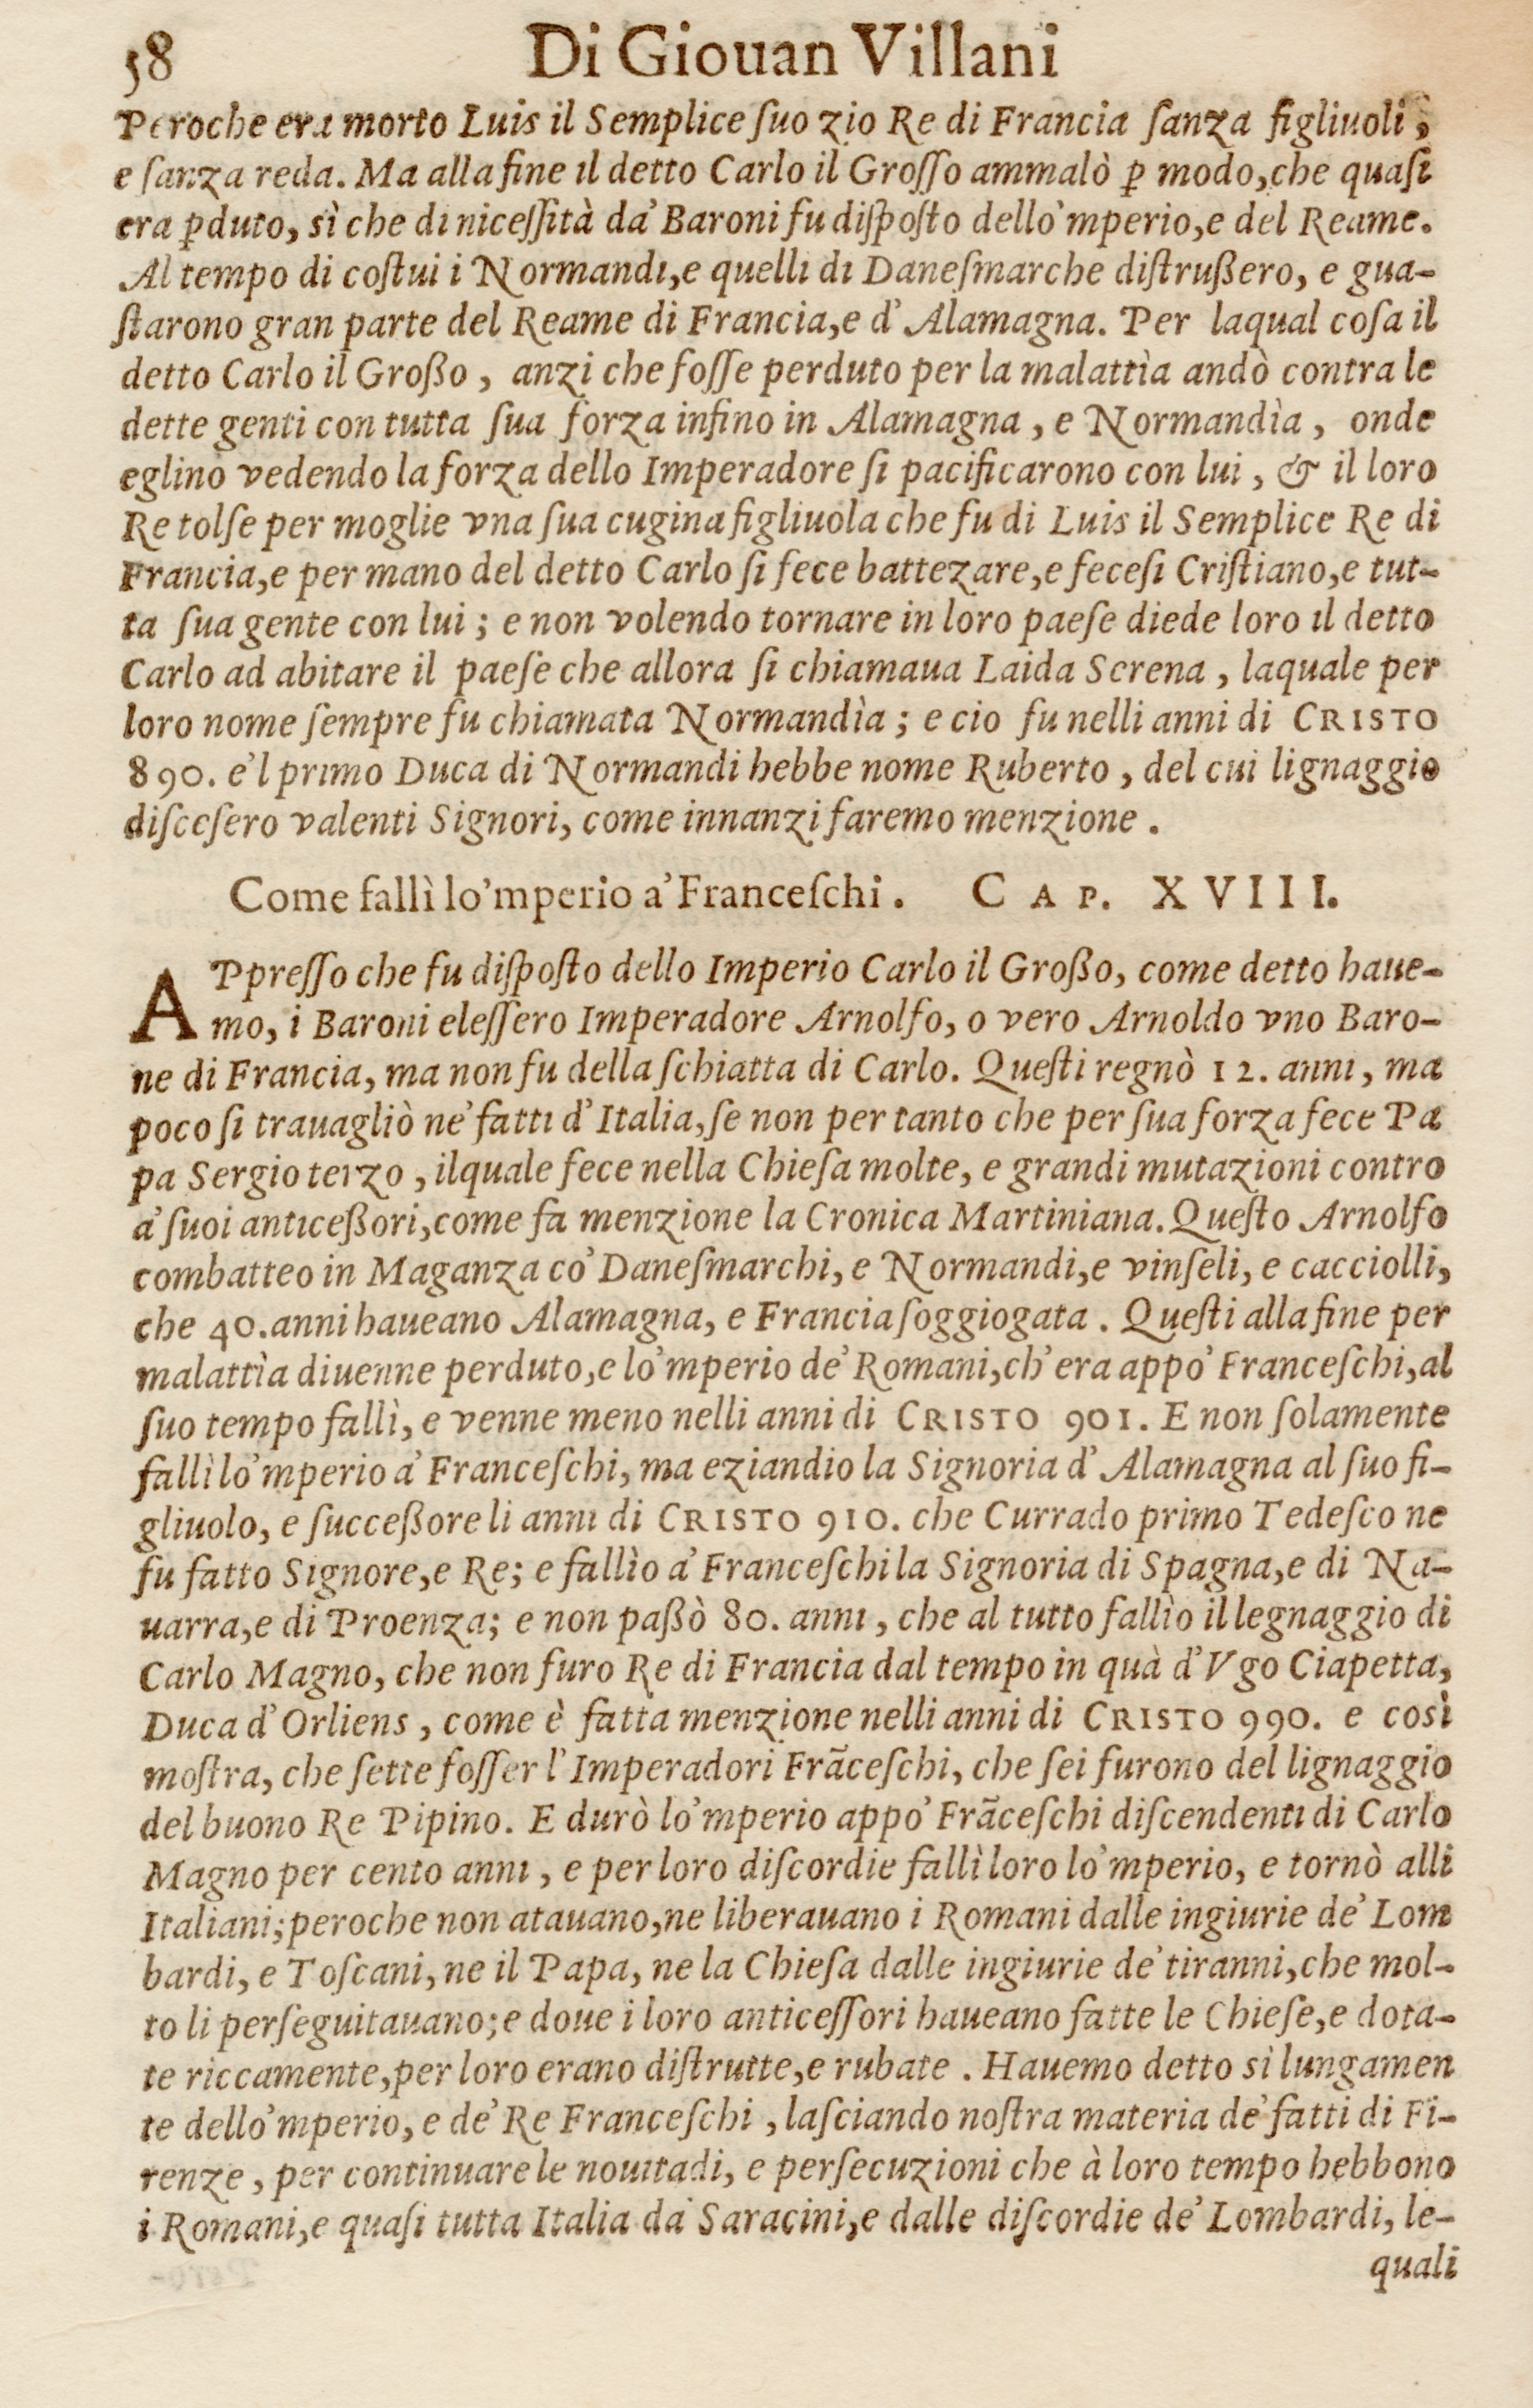 58 Di Giouan Villani
Peroche era morto Luis il Semplice ſuo zio Re di Francia ſanza figliuoli,
e ſanza reda. Ma alla fine il detto Carlo il Groſſo ammalò ꝑ modo, che quaſi
era ꝑduto, sì che di niceſſità da' Baroni fu diſpoſto dello 'mperio, e del Reame.
Al tempo di coſtui i Normandi, e quelli di Daneſmarche diſtrußero, e gua-
ſtarono gran parte del Reame di Francia, e d' Alamagna. Per laqual coſa il
detto Carlo il Großo, anzi che foſſe perduto per la malattìa andò contra le
dette genti con tutta ſua forza infino in Alamagna, e Normandìa, onde
eglino vedendo la forza dello Imperadore ſi pacificarono con lui, & il loro
Re tolſe per moglie vna ſua cugina figliuola che fu di Luis il Semplice Re di
Francia, e per mano del detto Carlo ſi fece battezare, e feceſi Criſtiano, e tut-
ta ſua gente con lui; e non volendo tornare in loro paeſe diede loro il detto
Carlo ad abitare il paeſe che allora ſi chiamaua Laida Serena, laquale per
loro nome ſempre fu chiamata Normandìa; e cio fu nelli anni di CRISTO
890. e'l primo Duca di Normandi hebbe nome Ruberto, del cui lignaggio
diſceſero valenti Signori, come innanzi faremo menzione.
Come fallì lo 'mperio a' Franceſchi. CAP. XVIII.
APpreſſo che fu diſpoſto dello Imperio Carlo il Großo, come detto haue-
mo, i Baroni eleſſero Imperadore Arnolfo, o vero Arnoldo vno Baro-
ne di Francia, ma non fu della ſchiatta di Carlo. Queſti regnò 12. anni, ma
poco ſi trauagliò ne' fatti d' Italia, ſe non per tanto che per ſua forza fece Pa
pa Sergio terzo, ilquale fece nella Chieſa molte, e grandi mutazioni contro
a' ſuoi anticeßori, come fa menzione la Cronica Martiniana. Queſto Arnolfo
combatteo in Maganza co' Daneſmarchi, e Normandi, e vinſeli, e cacciolli,
che 40. anni haueano Alamagna, e Francia ſoggiogata. Queſti alla fine per
malattìa diuenne perduto, e lo 'mperio de' Romani, ch' era appo' Franceſchi, al
ſuo tempo fallì, e venne meno nelli anni di CRISTO 901. E non ſolamente
fallì lo 'mperio a' Franceſchi, ma eziandio la Signoria d' Alamagna al ſuo fi-
gliuolo, e ſucceßore li anni di CRISTO 910. che Currado primo Tedeſco ne
fu fatto Signore, e Re; e fallìo a' Franceſchi la Signoria di Spagna, e di Na-
uarra, e di Proenza; e non paßò 80. anni, che al tutto fallìo il legnaggio di
Carlo Magno, che non furo Re di Francia dal tempo in quà d' Vgo Ciapetta,
Duca d' Orliens, come è fatta menzione nelli anni di CRISTO 990. e così
moſtra, che ſette foſſer l' Imperadori Frãceſchi, che ſei furono del lignaggio
del buono Re Pipino. E durò lo 'mperio appo' Frãceſchi diſcendenti di Carlo
Magno per cento anni, e per loro diſcordie fallì loro lo 'mperio, e tornò alli
Italiani; peroche non atauano, ne liberauano i Romani dalle ingiurie de' Lom
bardi, e Toſcani, ne il Papa, ne la Chieſa dalle ingiurie de' tiranni, che mol-
to li perſeguitauano; e doue i loro anticeſſori haueano fatte le Chieſe, e dota-
te riccamente, per loro erano diſtrutte, e rubate. Hauemo detto sì lungamen
te dello 'mperio, e de' Re Franceſchi, laſciando noſtra materia de' fatti di Fi-
renze, per continuare le nouitadi, e perſecuzioni che à loro tempo hebbono
i Romani, e quaſi tutta Italia da' Saracini, e dalle diſcordie de' Lombardi, le-
quali